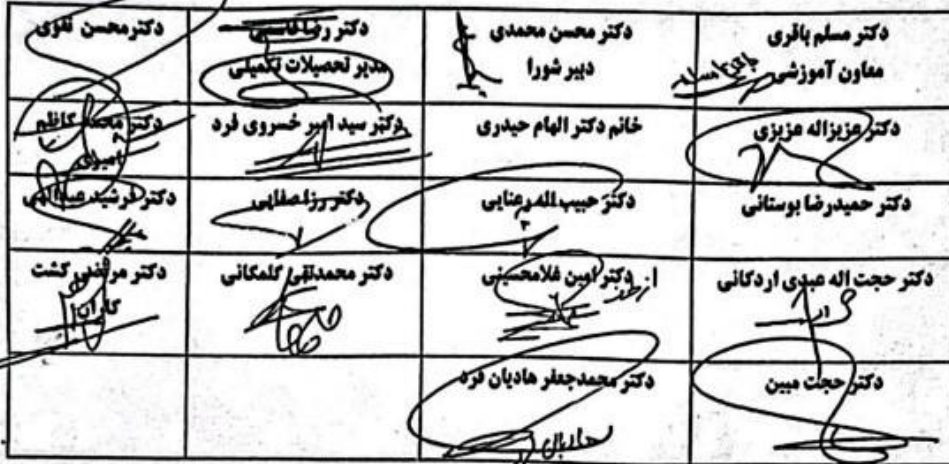 دکتر مسلم باقری
معاون آموزشی
دکتر محسن محمدی
دبیر شورا
دکتر رضا قاسمی
مدیر تحصیلات تکمیلی
دکتر محسن تقوی
دکتر عزیزاله عزیزی
خانم دکتر الهام حیدری
دکتر سید امیر خسروی فرد
دکتر محمد کاظم
امیری
دکتر حمیدرضا بوستانی
دکتر حبیب الله رعنایی
دکتر رزا صفایی
دکتر فرشید
دکتر حجت اله عبدی اردکانی
دکتر امین غلامحسینی
دکتر محمدتقی گلمکانی
دکتر مرتضی کشت
کاران
دکتر حجت مبین
دکتر محمدجعفر هادیان فرد